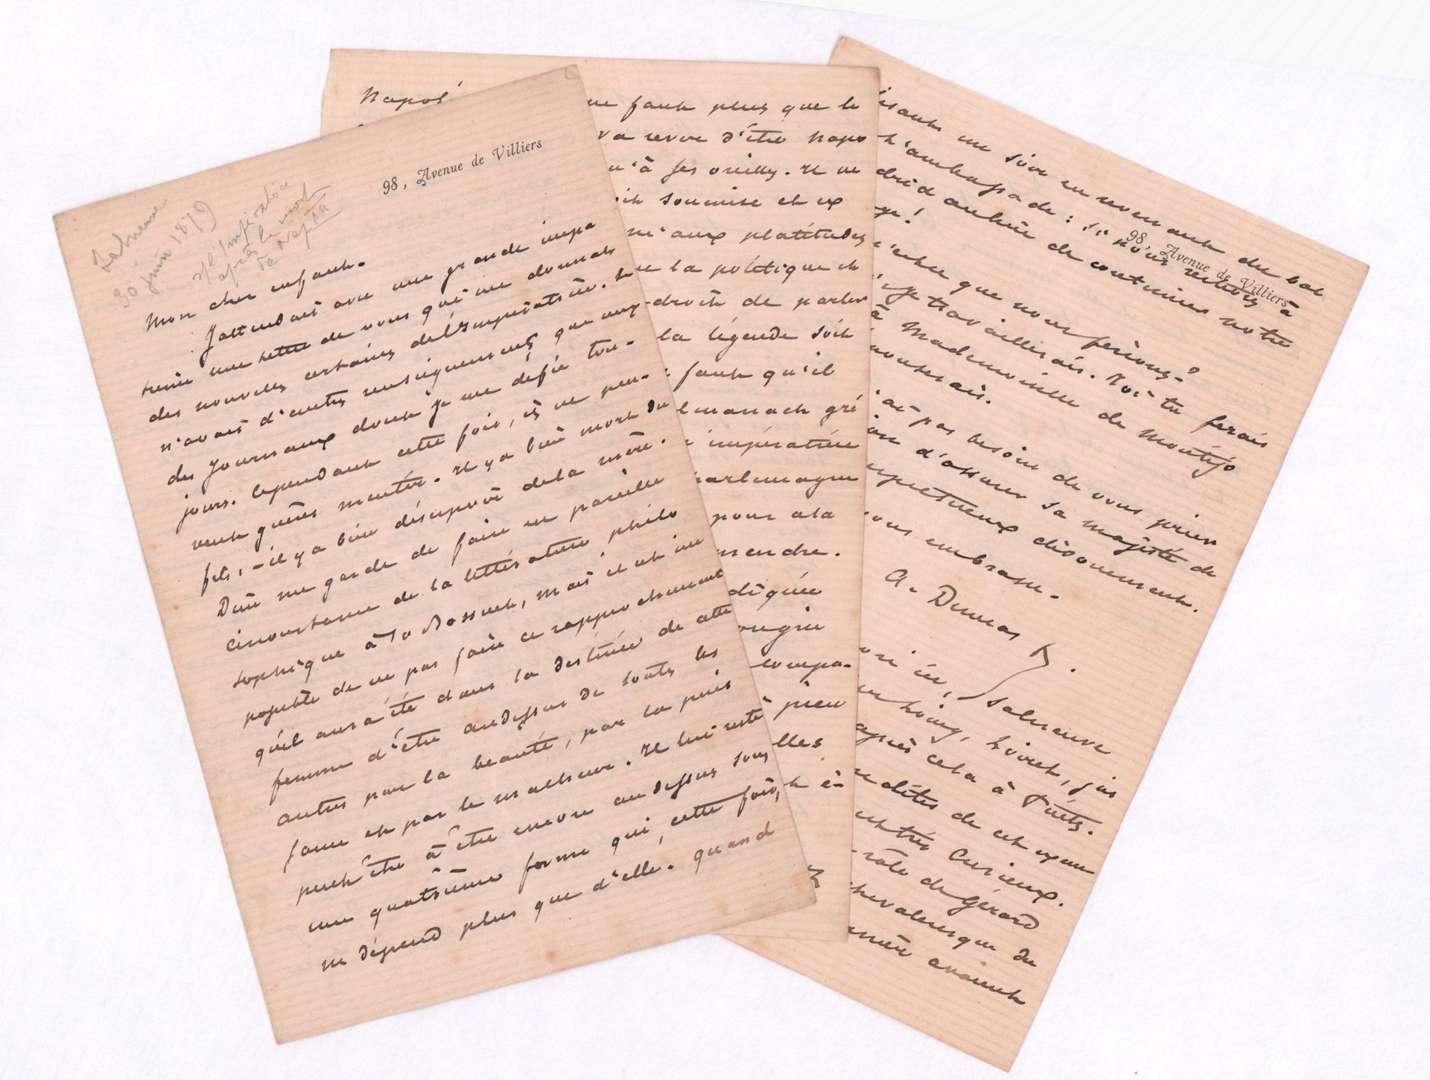 98, Avenue de Villiers
Salneuve
30 juin 1879
s/ l'impératrice
après la mort
de Napléon
Mon cher enfant.
J'attendais avec une grande impa
tience une lettre de vous qui me donnât
des nouvelles certaines de l'Impératrice. Je
n'avais d'autres renseignements que ceux
des journaux dont je me défie tou-
jours. Cependant cette fois, ils ne peu-
vent guères mentir. Il y a bien mort du
fils, - il y a bien désespoir de la mère.
Dieu me garde de faire en pareille
circonstance de la littérature philo
sophique à la Bossuet, mais il est im
possible de ne pas faire ce rapprochement
qu'il aura été dans la destinée de cette
femme d'être au dessus de toutes les
autres par la beauté, par la puis
sance et par le malheur. Il lui reste
peut être à être encore au dessus sous
une quatrième forme qui, cette fois,
ne dépend plus que d'elle. Quand
Napol
ne faut plus que le
va revee d'être Napo
qu'à ses oreilles. Il ne
soit soumise et ex
ni aux platitudes
que la politique et
droit de parler
la légende soit
faut qu'il
lmanach gré
impératrice
harlemagne
pour a la
rendre.
diguée
ougie
compa-
pieu
lles
t ê-
98, Avenue de Villiers
disant un soir en revenant du bal
l'ambassade: Si nous restions à
drid au lieu de continuer notre
age!
Qu'est-ce que nous ferions?
je travaillerais. Toi tu ferais
à Mademoiselle de Montijo
épouserais.
ai pas besoin de vous prier
d'assurer sa majesté de
respectueux dévouement.
vous embrasse.
A. Dumas f.
ici, Salneuve
Loiret, j'ai
après cela à Puits.
me dites de cet exem
est très curieux.
rôle de Gérard
chevaleresque du
avaient